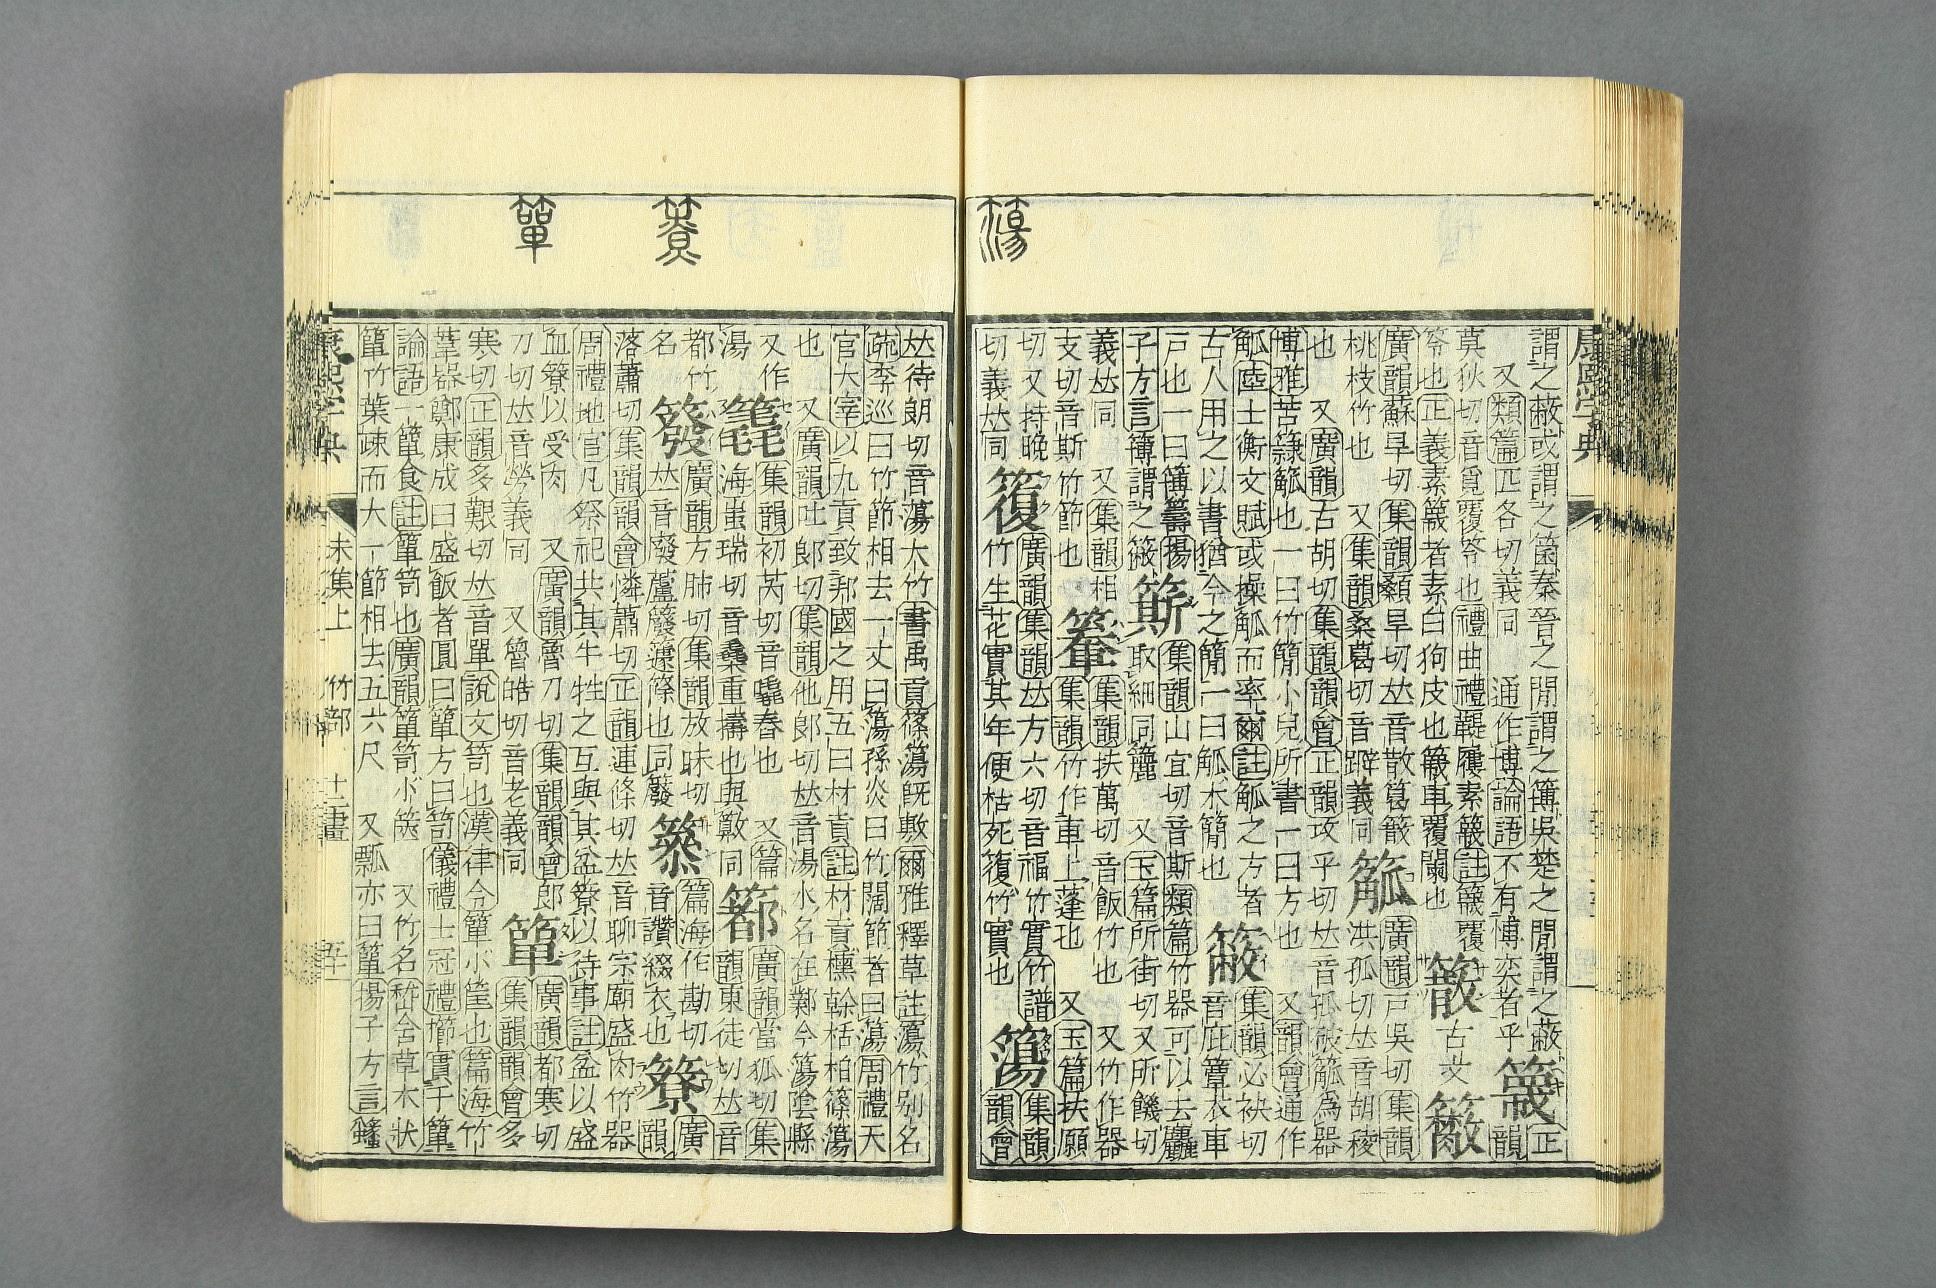 簜
康熙字典
謂之蔽或謂之箘秦晉之閒謂之簙吳楚之閒謂之蔽
又類篇匹各切義同 通作博論語不有博奕者乎
簚
正
韻
莫狄切音覓覆笭也禮曲禮鞮屨素簚註簚覆
笭也正義素簚者素白狗皮也簚車覆闌也
古文
廣韻蘇旱切集韻顙旱切𠀤音散
桃枝竹也 又集韻桑葛切音躃義同
䉉
廣韻戸吳切集韻
洪孤切𠀤音胡稜
也 又廣韻古胡切集韻韻會正韻攻乎切𠀤音孤破觚為器
博雅苦簶觚也一曰竹簡小兒所書一曰方也 又韻會通作
觚陸士衡文賦或操觚而率爾註觚之方者
古人用之以書猶今之簡一曰觚木簡也
集韻必袂切
音庇簟衣車
戸也一曰簙籌揚
子方言簙謂之
簛
集韻山宜切音斯類篇竹器可以去麤
取細同簏 又玉篇所街切又所饑切
義𠀤同 又集韻相
支切音斯竹節也
䉊
集韻扶萬切音飯竹也 又竹作器
集韻竹作車上篷也 又玉篇扶願
切又持晚
切義𠀤同
廣韻集韻𠀤方六切音福竹實竹譜
竹生花實其年便枯死竹實也
簜
集韻
韻會
簝
簞
𠀤待朗切音蕩大竹書禹貢篠簜旣敷爾雅釋草註簜竹别名
疏李巡曰竹節相去一丈曰簜孫炎曰竹闊節者曰簜周禮天
官大宰以九貢致邦國之用五曰材貢註材貢櫄榦栝柏篠簜
也 又廣韻吐郎切集韻他郎切𠀤音湯水名在鄴今簜陰縣
又作
湯
集韻初芮切音竁舂也 又篇
海蚩瑞切音 重擣也與 同
都竹
名
簩
廣韻方肺切集韻放吠切
𠀤音廢蘆籧篨也同廢
篇海作勘切
音讚綴衣也
廣韻當狐切集
韻東徒切𠀤音
簝
廣
韻
落蕭切集韻韻會憐蕭切正韻連條切𠀤音聊宗廟盛肉竹器
周禮地官凡祭祀共其牛牲之互與其盆簝以待事註盆以盛
血簝以受肉 又廣韻魯刀切集韻韻會郎
刀切𠀤音勞義同 又魯皓切音老義同
簞
廣韻都寒切
集韻韻會多
寒切正韻多艱切𠀤音單說文笥也漢律令簞小筐也篇海竹
葦器鄭康成曰盛飯者圓曰簞方曰笥儀禮士冠禮櫛實于簞
論語一簞食註簞笥也廣韻簞笥小篋 又竹名嵇含草木狀
簞竹葉疎而大一節相去五六尺 又瓢亦曰簞揚子方言
康熙字典 未集上 竹部 十二畫